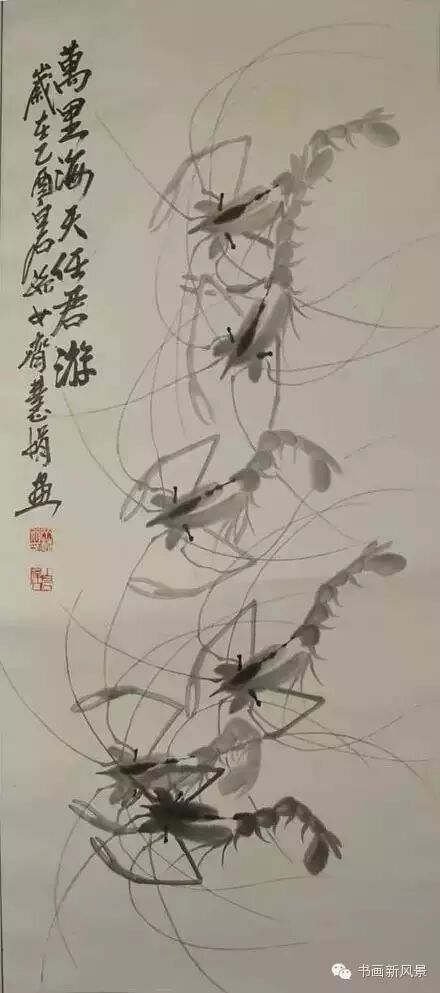 萬里海天任君游
歲在乙酉白石孫女齊慧娟畫
书画新风景